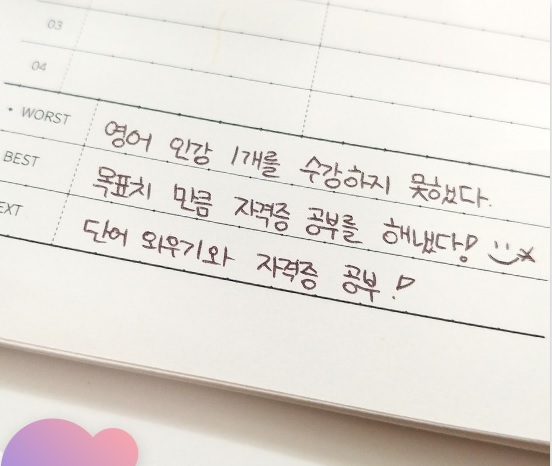 03
04
• WORST 영어 인강 1개를 수강하지 못했다.
BEST 목표치 만큼 자격증 공부를 해냈다!
EXT 단어 외우기와 자격증 공부!